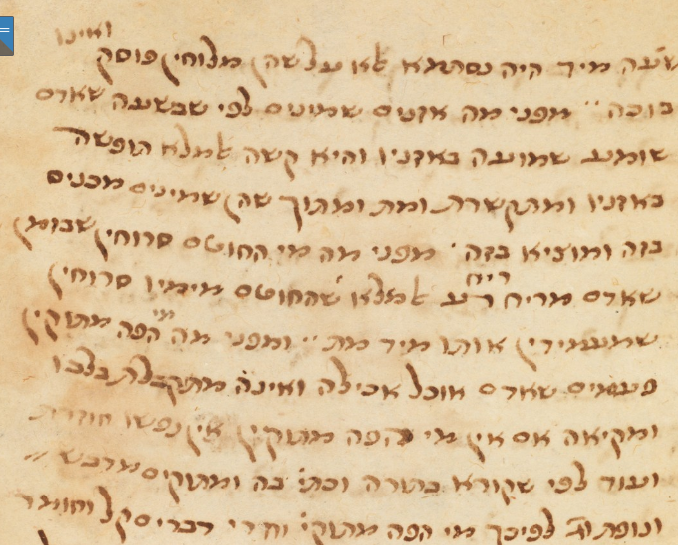 ואינו
שעה מיד היה נסתמא לא עלשהן מלוחין פוסק
בוכה מפני מה אזנים שמינים לפי שבשעה שאדם
שומע שמועה באזניו והיא קשה אלמלא תופשה
באזניו ומתקשרת ומת ומתוך שהן שמינים מכניס
בזה ומוציא בזה מפני מה מי החוטם סרוחין שבזמן
ריח
שאדם מריח רע אלמלא שהחוטם מימיו סרוחין
שמעמידין אותו מיד מת ומפני מה מי הפה מתוקין
פעמים שאדם אוכל אכילה ואינה מתקבלת בלבו
ומקיאה אם אין מי הפה מתוקין אין נפשו חוזרת
ועוד לפי שקורא בתורה וכתי בה ומתוקים מדבש
ונופת וג לפיכך מי הפה מתוקי והרי דברים קל וחומר